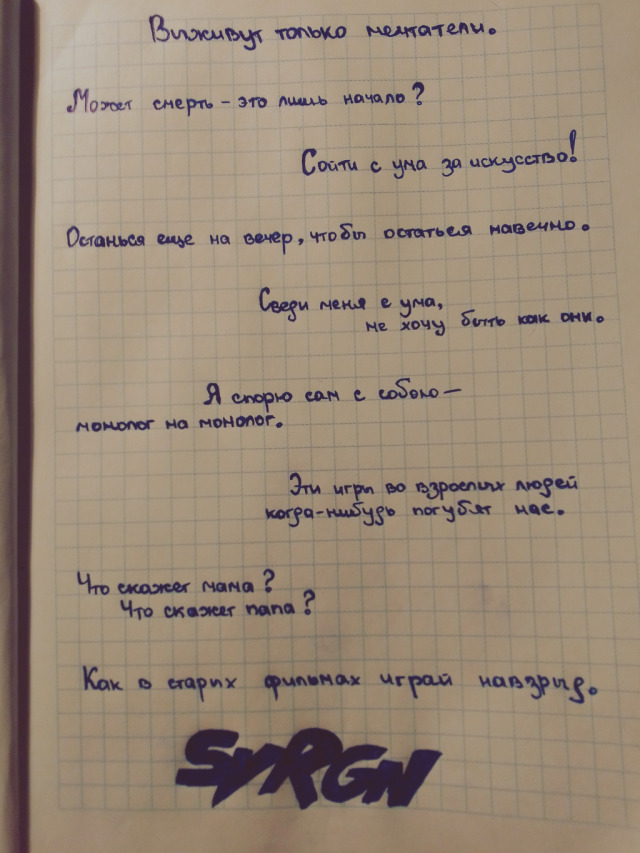 Выживут только мечтатели.
Может смерть - это лишь начало?
Сойти с ума за искусство!
Останься еще на вечер, чтобы остаться навечно.
Сведи меня с ума,
не хочу быть как они.
Я спорю сам с собою —
монолог на монолог.
Эти игры во взрослых людей
когда-нибудь погубят нас.
Что скажет мама?
Что скажет папа?
Как в старых фильмах играй навзрыд.
SVRGN